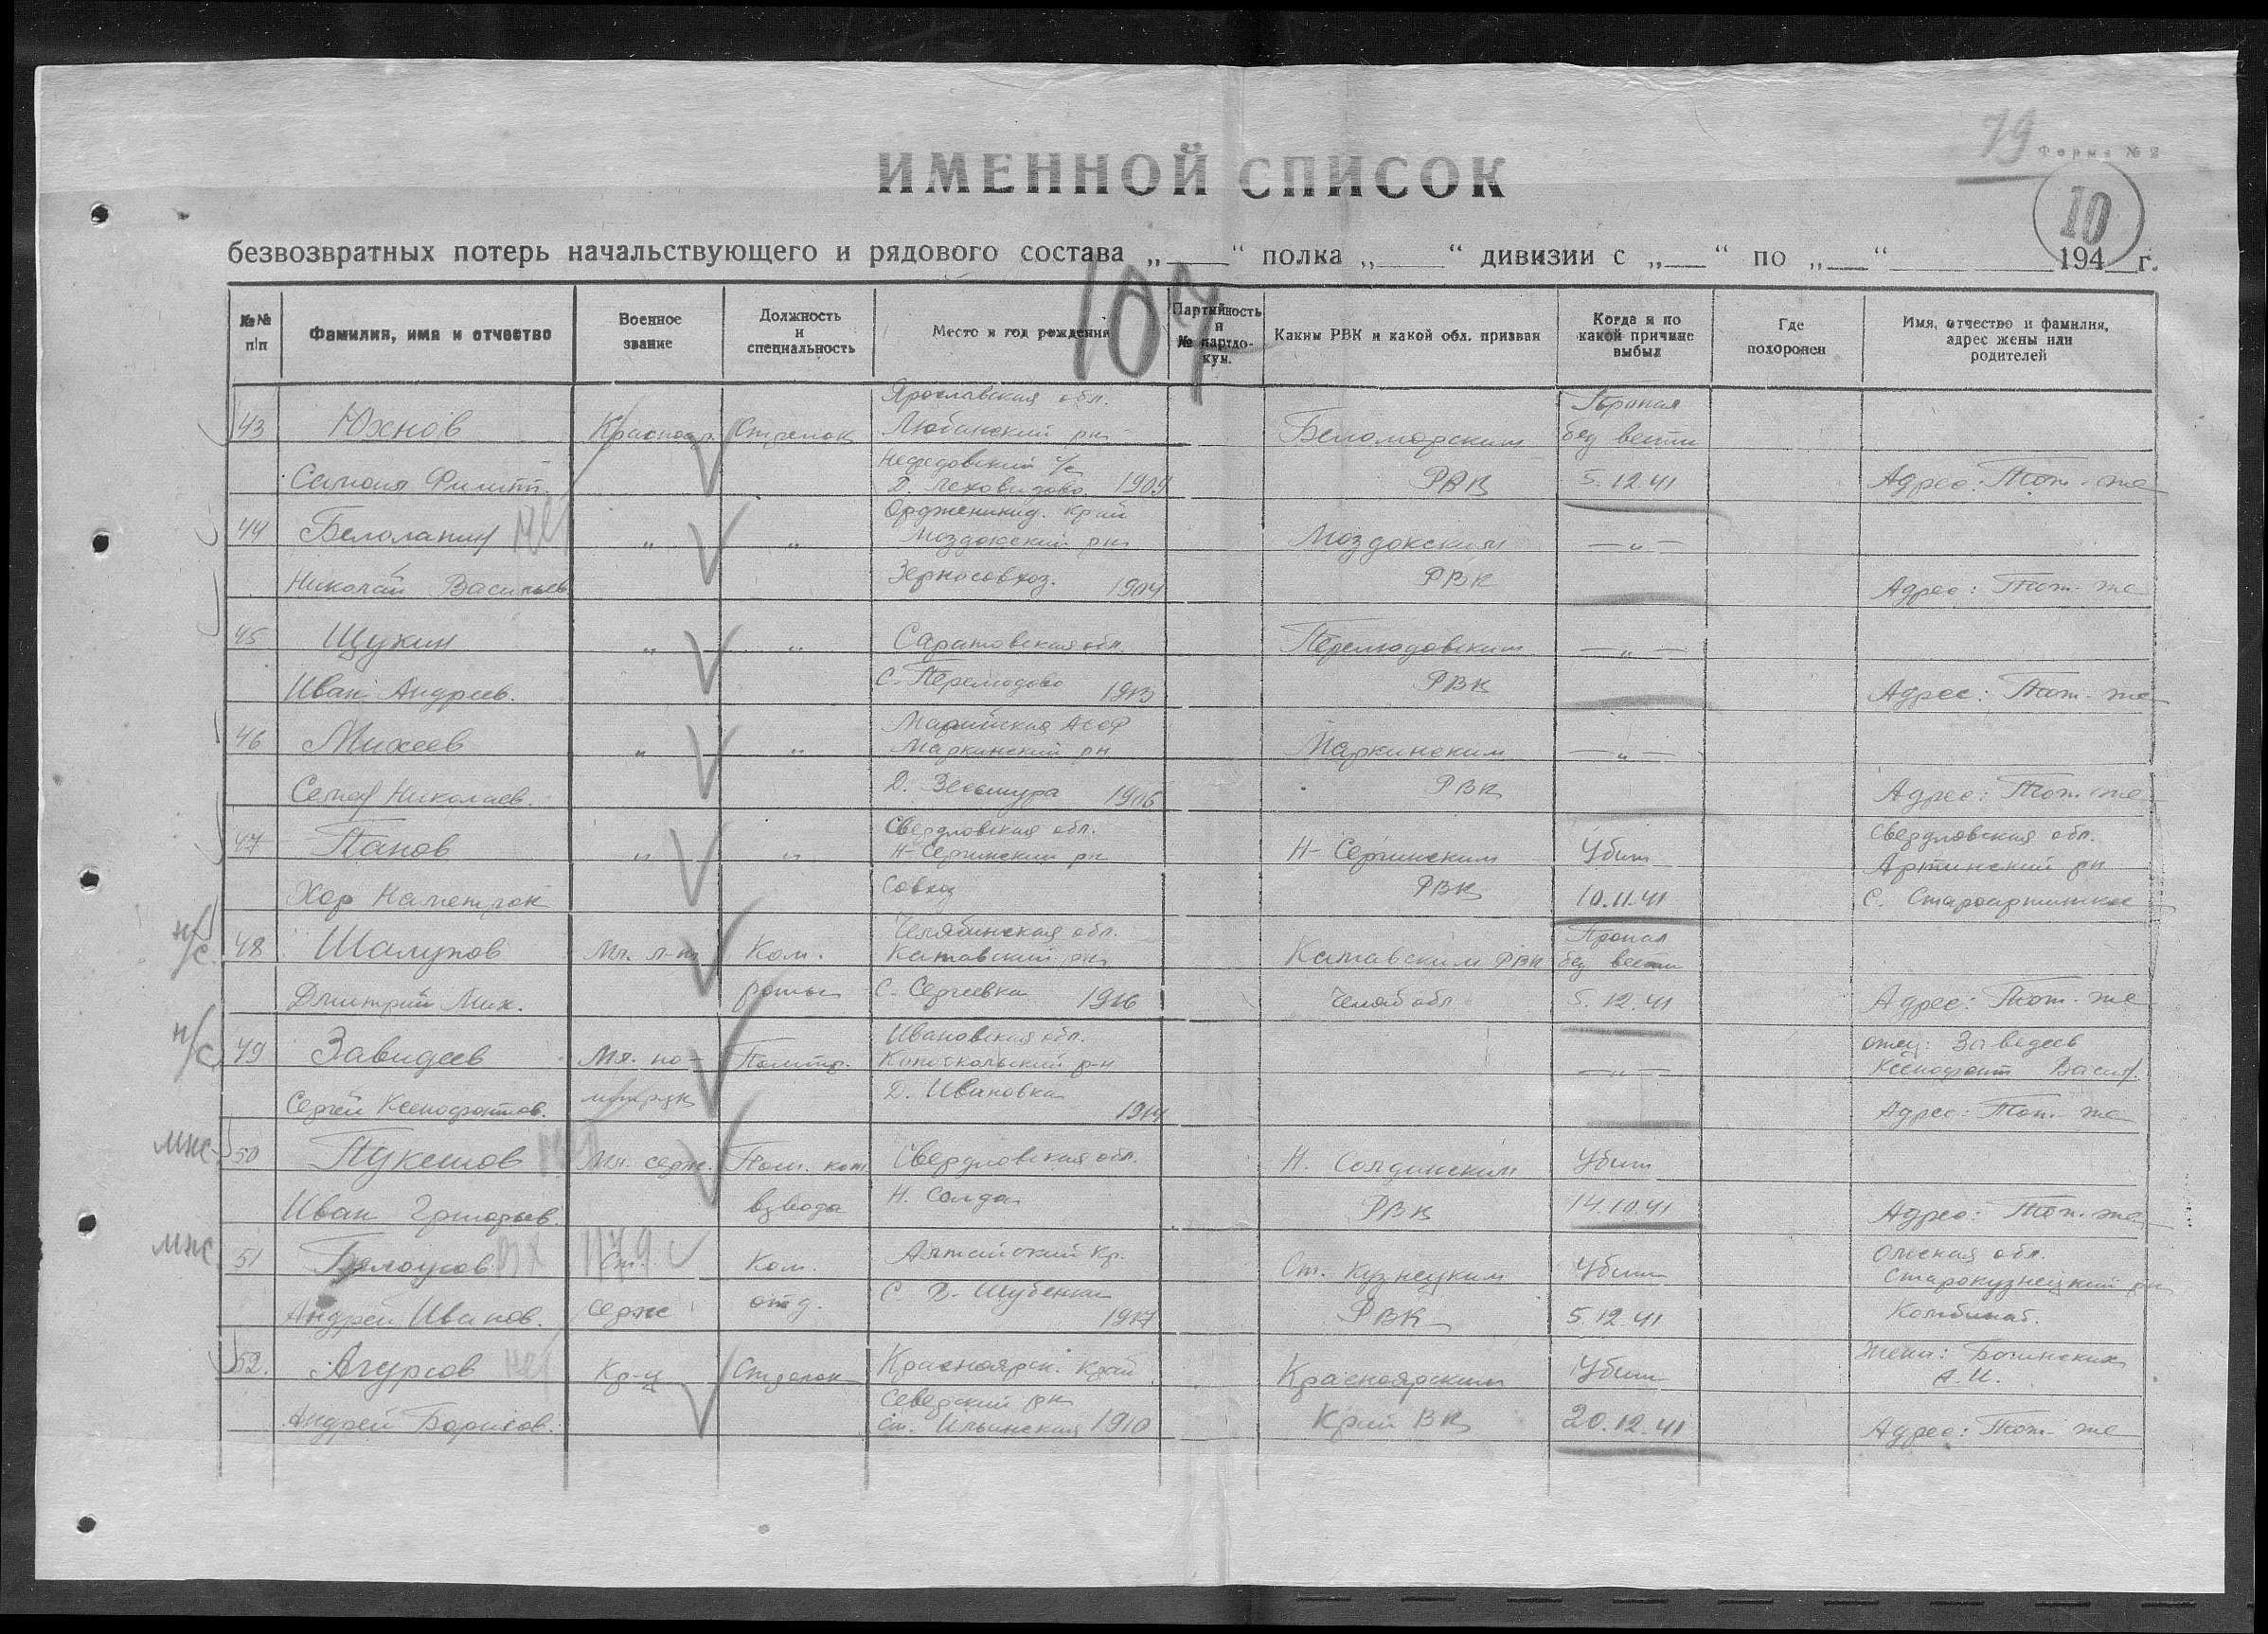 79 Форма № 2
ИМЕННОЙ СПИСОК
10
безвозвратных потерь начальствующего и рядового состава „ “ полка „ “ дивизии с „ “ по „ “ 194 г.
107
№№ п/п
Фамилия, имя и отчество
Военное звание
Должность и специальность
Место и год рождения
Партийность и № партдокум.
Каким РВК и какой обл. призван
Когда и по какой причине выбыл
Где похоронен
Имя, отчество и фамилия, адрес жены или родителей
Ярославская обл. Пропал
43 Юхнов Красноар. Стрелок Любимский рн Беломорским без вести
Самоил Филип. 1909 РВК 5.12.41 Адрес: Тот-же
Орджоникид. край
44 Белолапин „ „ Моздокский рн Моздокским — „ —
Николай Васильев Зерносовхоз. 1904 РВК Адрес: Тот-же
45 Щукин „ „ Саратовская обл. Перелюдовским — „ —
Иван Андреев. С. Перелюдово 1913 РВК Адрес: Тот-же
Марийская АССР
46 Михеев „ „ рн — „ —
Семен Николаев. Д. 1906 РВК Адрес: Тот-же
Свердловская обл. Свердловская обл.
47 Панов „ „ Н-Сергинский рн Н-Сергинским Убит Артинский рн
Совхоз РВК 10.11.41 С. Староартинское
Челябинская обл. Пропал
н/с 48 Шалупов Мл. л-нт Ком. Катавский рн Катавским РВК без вести
Дмитрий Мих. роты С. Сергеевка 1916 Челяб обл 5.12.41 Адрес: Тот-же
Ивановская обл. отец: Заведеев
н/с 49 Завидеев Мл. по- Политр. р-н — „ — Ксенофонт Васил.
Сергей Ксенофонтов. литрук Д. Ивановка 1914 Адрес: Тот-же
мнс 50 Пукешов Мл. серж. Пом. ком. Свердловская обл. Н. Солдинским Убит
Иван Григорьев. взвода Н. Солда РВК 14.10.41 Адрес: Тот-же
1179с Омская обл.
мнс 51 Белоусов Ст. Ком. Алтайский кр. Ст. Кузнецким Убит Старокузнецкий рн
Андрей Иванов. серж отд. С. В. Шубенка 1917 РВК 5.12.41 Комбинат.
Жена: А.И.
52. Агурсов Кр-ц Стрелок Красноярск. край Красноярским Убит
Андрей Борисов. рн Ст. Ильинская 1910 Край ВК 20.12.41 Адрес: Тот-же